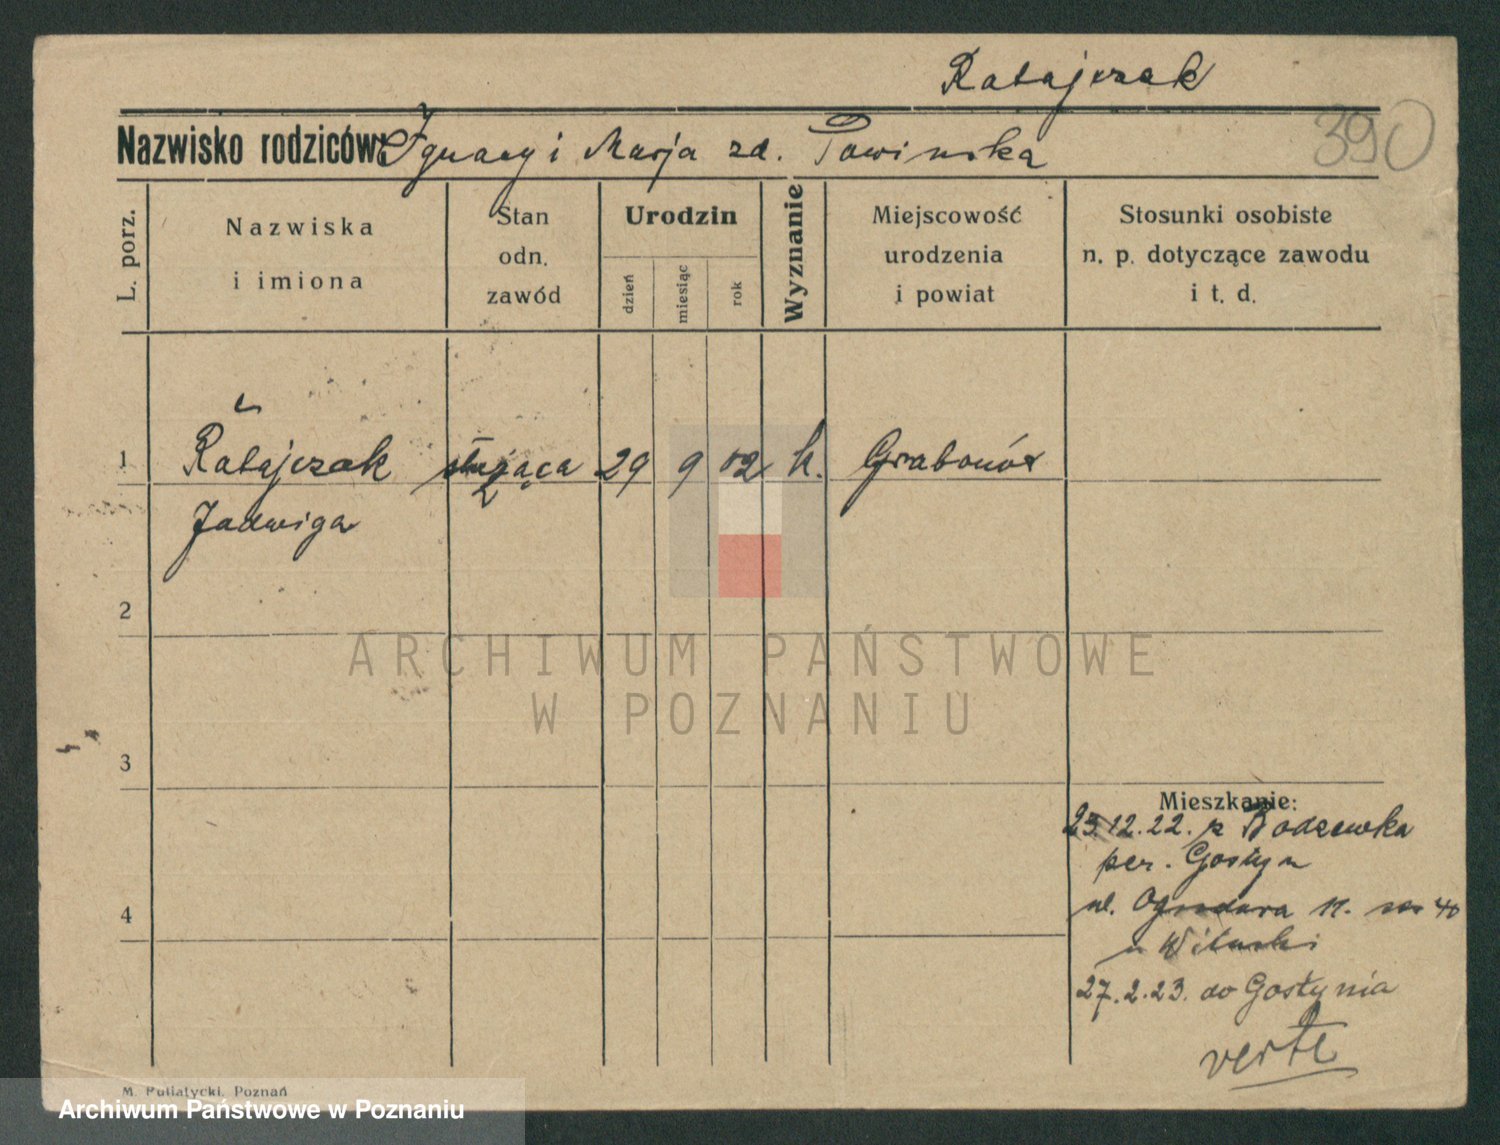 Ratajczak
390
Nazwisko rodziców: Ignacy i Marja zd. Powinska
L. porz.
Nazwiska i imiona
Stan odn. zawód
Urodzin
dzień
miesiąc
rok
Wyznanie
Miejscowość urodzenia i powiat
Stosunki osobiste n. p. dotyczące zawodu i t. d.
1 Ratajczak służąca 29 9 02 k. Grabonóx
Jadwiga
2
ARCHIWUM PAŃSTWOWE
W POZNANIU
3
Mieszkanie:
23.12.22. z Bodzewka
per. Gostyn
ul. Ogrodowa 11.
u Wituski
27.2.23. do Gostynia
verte
4
M. Putiatycki, Poznań
Archiwum Państwowe w Poznaniu